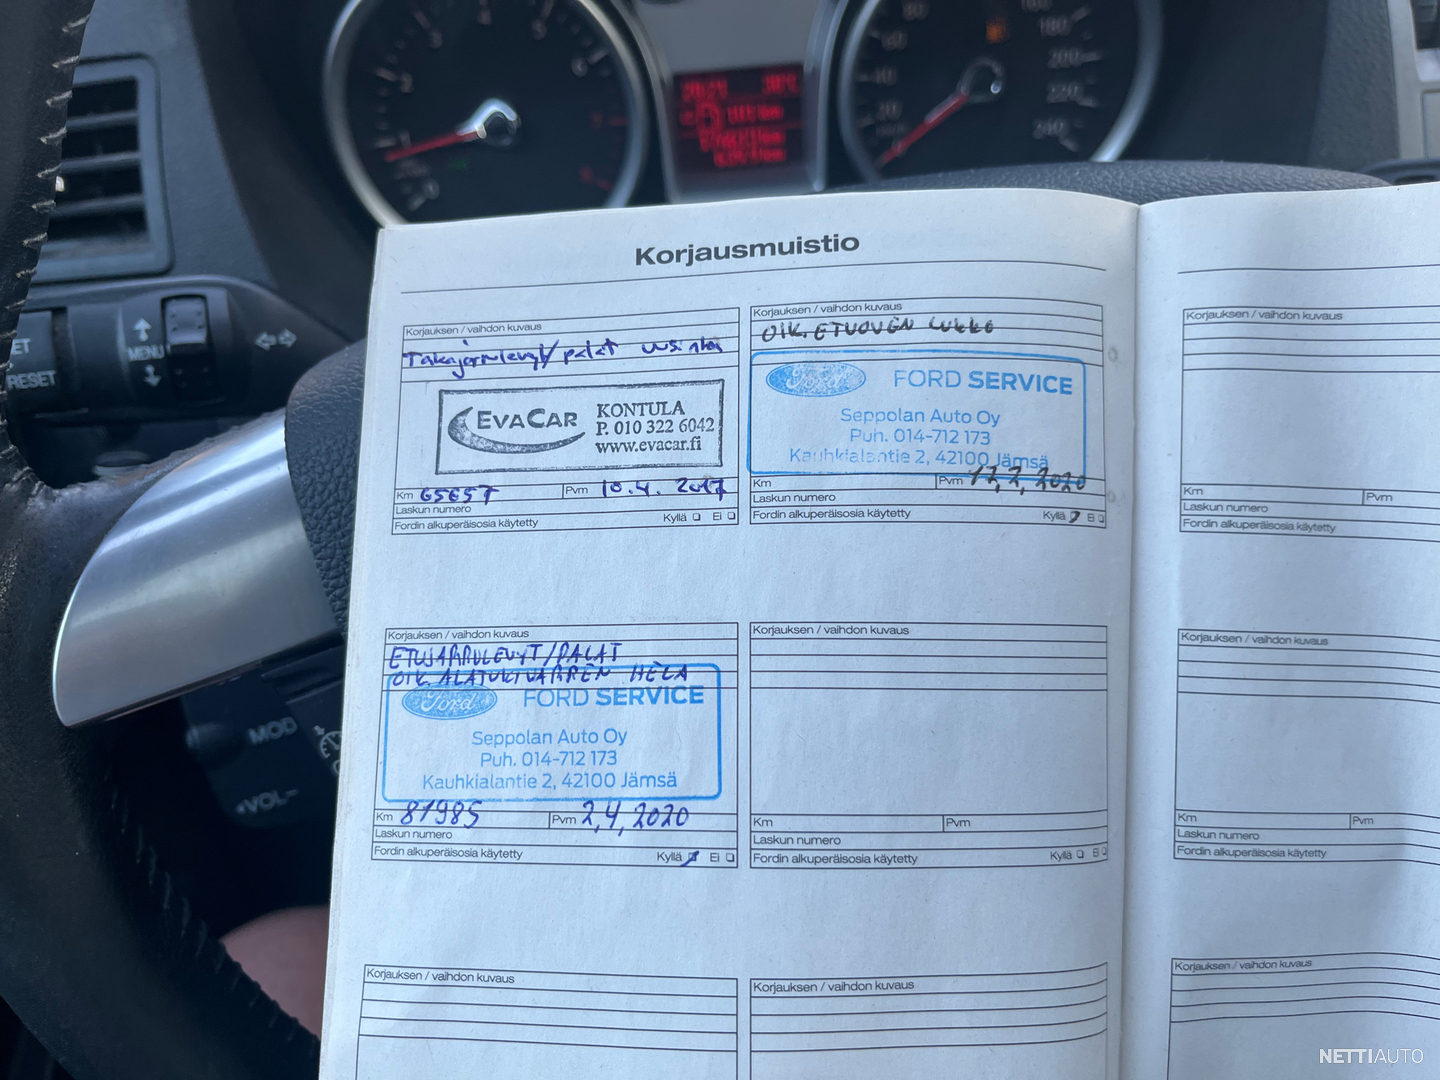 1 2 3 4 5 6 7
20 40 60 80 160 180 200 220 240
ET
RESET
MENU
MOD
VOL-
Korjausmuistio
Korjauksen / vaihdon kuvaus
Takajarrulevyt/palat uusittu
EVACAR
KONTULA
P. 010 322 6042
www.evacar.fi
Km 65657 Pvm 10.4. 2017
Laskun numero
Fordin alkuperäisosia käytetty Kyllä Ei
Korjauksen / vaihdon kuvaus
OIK. ETUOVEN LUKKO
Ford FORD SERVICE
Seppolan Auto Oy
Puh. 014-712 173
Kauhkialantie 2, 42100 Jämsä
Km Pvm 2020
Laskun numero
Fordin alkuperäisosia käytetty Kyllä Ei
Korjauksen / vaihdon kuvaus
Km Pvm
Laskun numero
Fordin alkuperäisosia käytetty
Korjauksen / vaihdon kuvaus
ETUJARRULEVYT/PALAT
OIK. ALATUKIVARREN HELA
Ford FORD SERVICE
Seppolan Auto Oy
Puh. 014-712 173
Kauhkialantie 2, 42100 Jämsä
Km 81985 Pvm 2,4,2020
Laskun numero
Fordin alkuperäisosia käytetty Kyllä Ei
Korjauksen / vaihdon kuvaus
Km Pvm
Laskun numero
Fordin alkuperäisosia käytetty Kyllä Ei
Korjauksen / vaihdon kuvaus
Km Pvm
Laskun numero
Fordin alkuperäisosia käytetty
Korjauksen / vaihdon kuvaus
Korjauksen / vaihdon kuvaus
Korjauksen / vaihdon kuvaus
NETTIAUTO